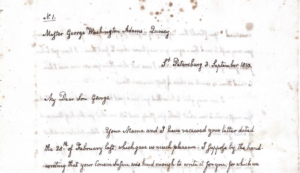 N. 1.
Master George Washington Adams. Quincy
St. Petersburg 3. September 1810.
My Dear Son George.
Your Mama and I have received your letter dated
the 20th of February last, which gave us much pleasure. I suppose by the hand
writing that your Cousin was kind enough to write it for you, for which